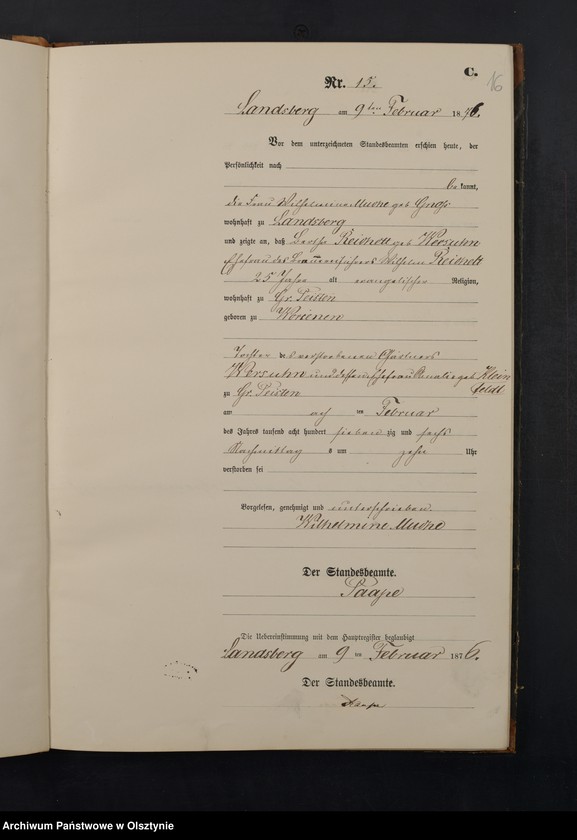 C.
16
Nr. 15.
Landsberg am 9ten Februar 1876.
Vor dem unterzeichneten Standesbeamten erschien heute, der
Persönlichkeit nach
bekannt,
die Frau Wilhelmine geb
wohnhaft zu Landsberg
und zeigte an, daß Reichelt geb Worsuhn
Ehefrau des Wilhelm Reichelt
25 Jahre alt evangelischer Religion,
wohnhaft zu Gr. Peisten
geboren zu Worienen
Tochter des verstorbenen Gärtners
Worsuhn und dessen Ehefrau Amalie geb Klein
feldt
zu Gr. Peisten
am acht ten Februar
des Jahres tausend acht hundert sieben zig und sechs
Nachmittag s um zehn Uhr
verstorben sei
Vorgelesen, genehmigt und unterschrieben
Wilhelmine
Der Standesbeamte.
Paape
Die Uebereinstimmung mit dem Hauptregister beglaubigt
Landsberg am 9 ten Februar 1876.
Der Standesbeamte.
Archiwum Państwowe w Olsztynie